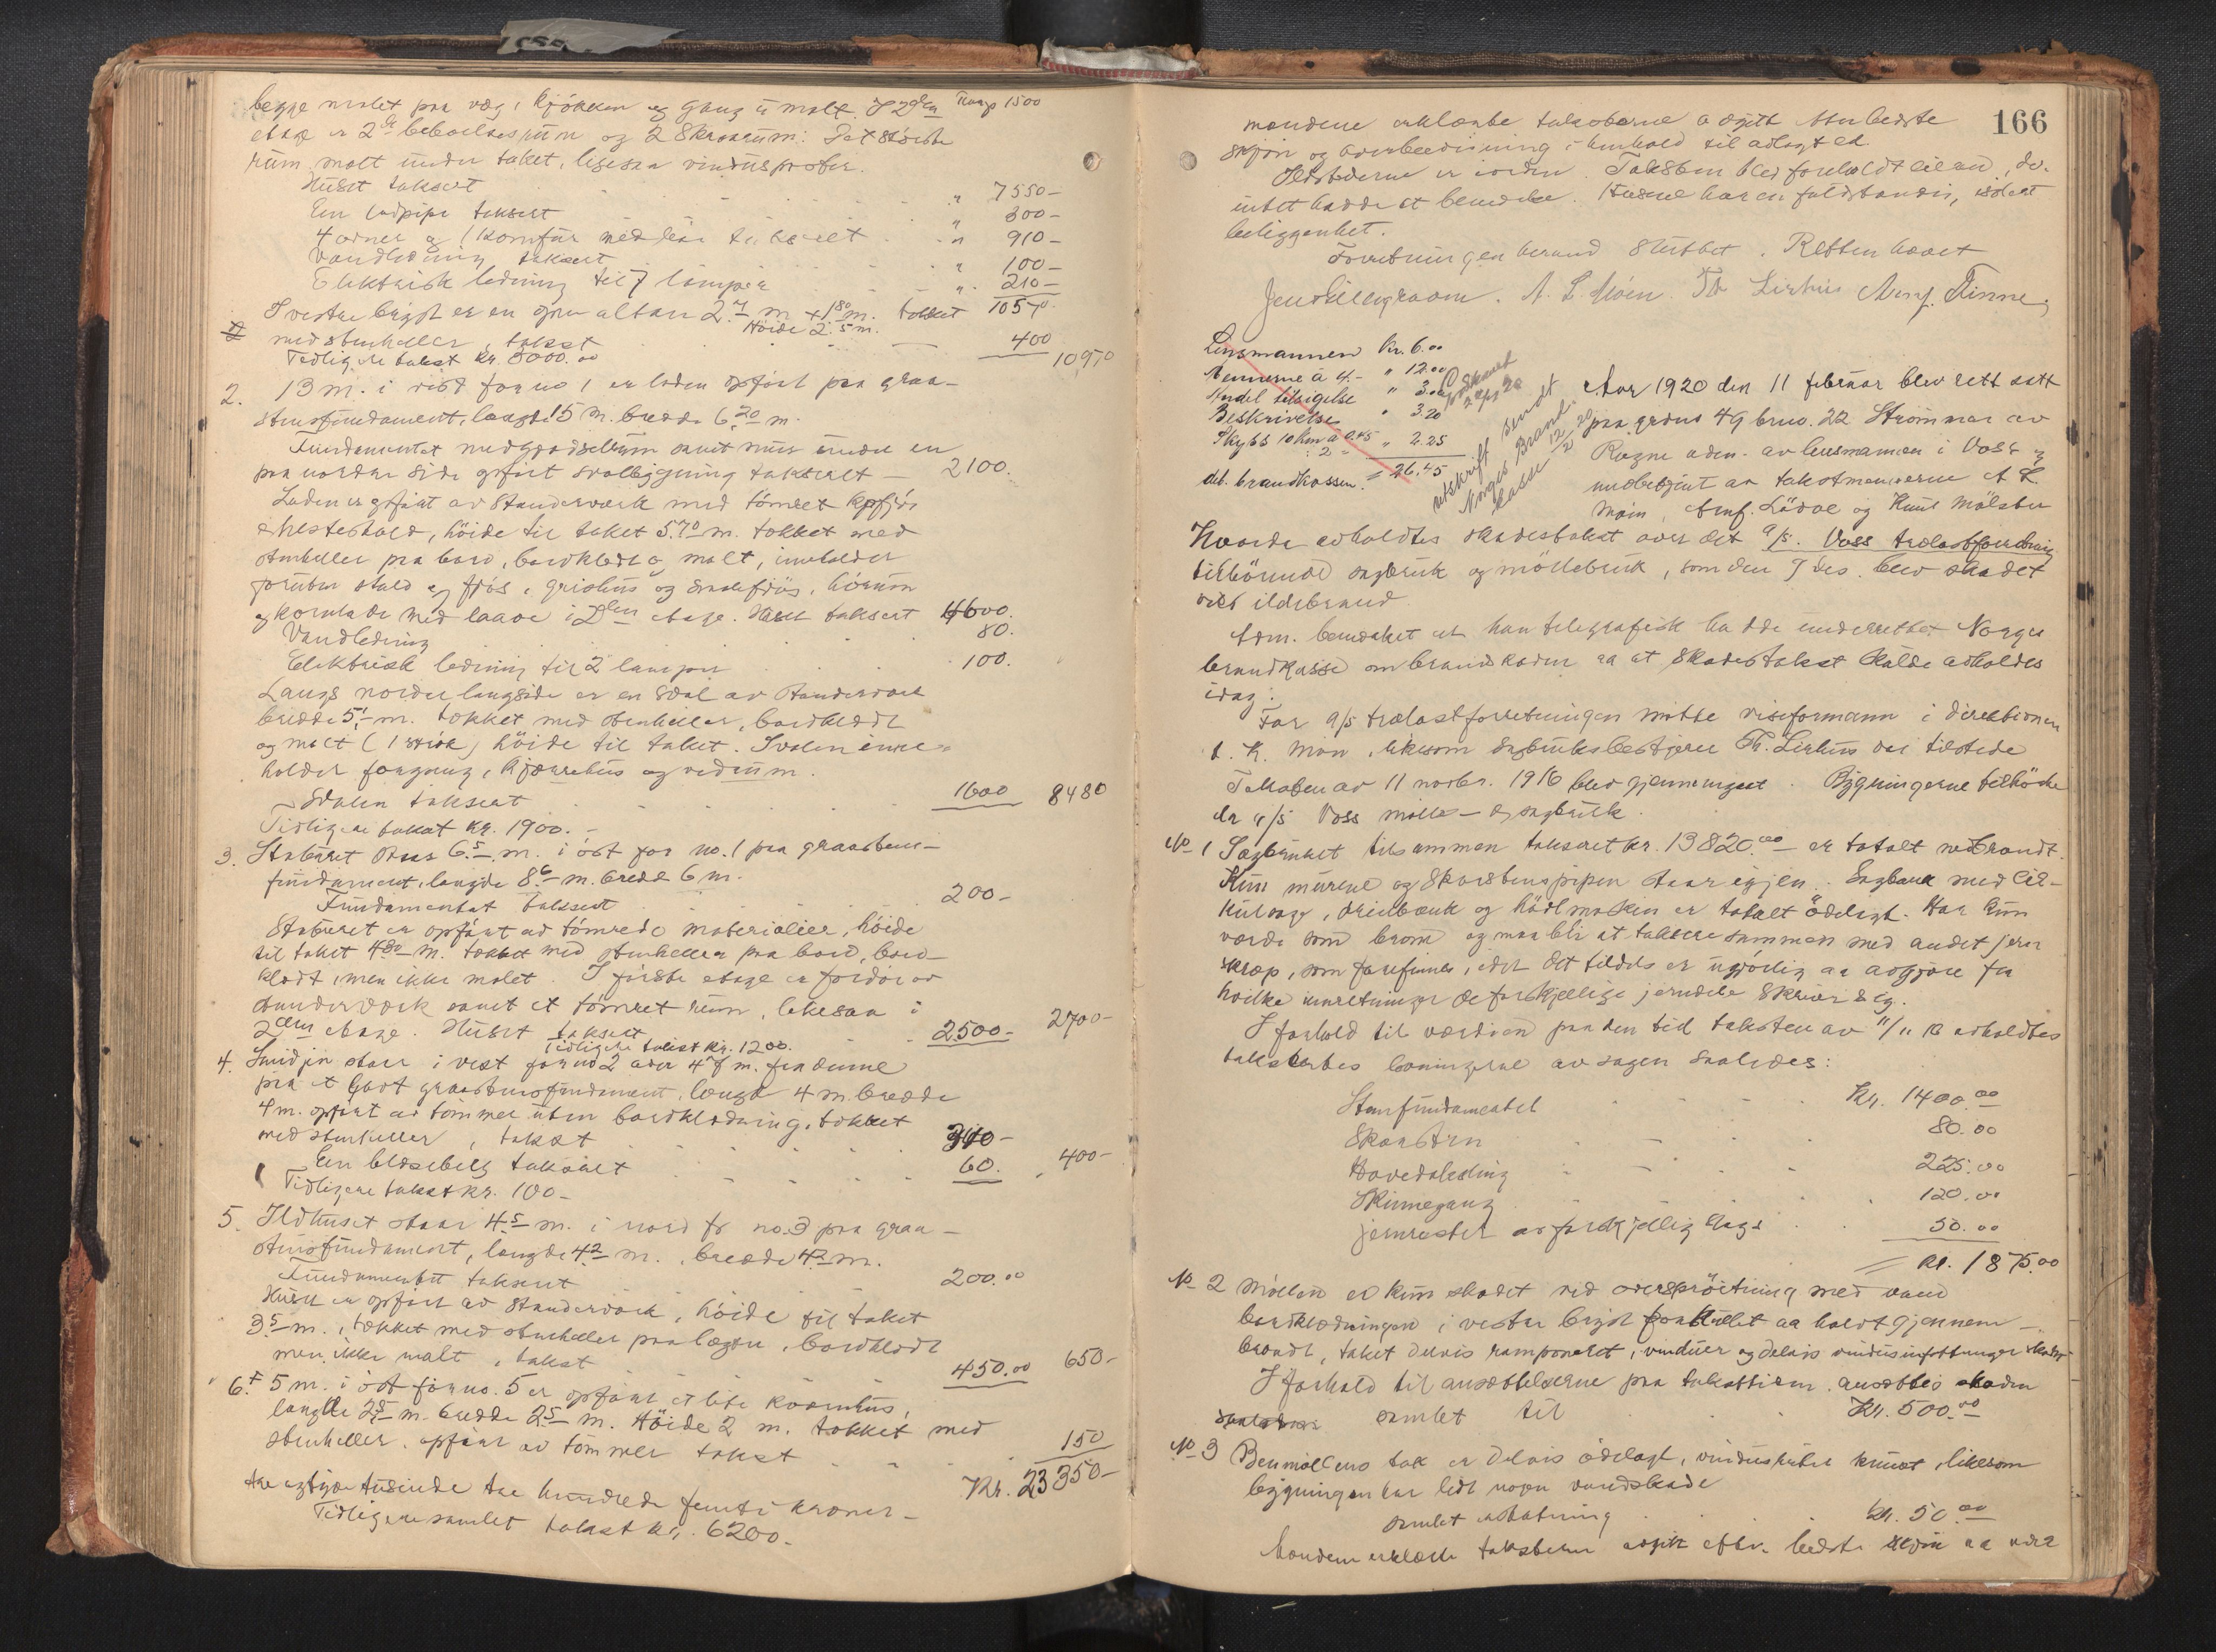 begge malet paa væg, kjøkken og gang ü malt. I 2den Transp 1500
etage er 2de beboelsesrüm og 2 Skraarüm: Det største
rüm malt ünder taket, ligesaa vindüsposter.
Hüset taksert " 7550-
En ladpipe taksert " 300-
4 ovner og 1 komfür med taksert " 910-
Vandledning taksert " 100-
Elektrisk ledning til 7 lamper " 210-
I vestre bügt er en open altan 2.7 m x 1.80 m. tækket 10570
Høide 2.5 m.
med stenheller, takst 400
Tidligere takst kr. 3000.00 10970
2. 13 m. i nord for no 1 er laden opført paa graa-
stensfündament, længde 15 m. bredde 6.20 m.
Fündamentet med gjødselrüm samt mür ünder en
paa nordre side opført svalbygning taksert - 2100.
Laden er opført av Standerværk med tømret kufjøs
& hestestald, høide til taket 5.70 m. tækket med
stenheller paa bord, bordklædt og malt, inneholder
foruten stald og fjøs, grishüs og smalefjøs, hörüm
og kornlade med laave i 2den etage. Hüset taksert 4600.
Vandledning 80.
Elektrisk ledning til 2 lamper 100.
Langs nordre langside er en sval av standerværk
bredde 5.1 m. tækket med stenheller, bordklædt
og malt (1 strøk) høide til taket. Svalen inne-
holder forgang, kjærrehüs og vedrüm.
Svalen taksert 1600 8480
Tidligere takst kr. 1900.-
3. Stabüret staar 6.5 m. i øst for no. 1 paa graastens-
fündament, længde 8.6 m. bredde 6 m.
Fündamentet taksert 200-
Stabüret er opført av tømrede materialier, høide
til taket 4.80 m. tækket med stenheller paa bord, bord-
klædt, men ikke malet. I første etage er fordør av
standerværk samt et tømret rüm, likesaa i
2den etage. Hüset taksert 2500- 2700-
Tidligere takst kr. 1200.
4. Smidjen staar i vest for no 2 over 47 m. fra denne
paa et godt graastensfündament, længde 4 m. bredde
4 m. opført av tømmer üten bordklædning, tækket
med stenheller, takst 340-
En blæsebelg taksert 60. 400-
Tidligere takst kr. 100-
5. Ildhuset staar 4.5 m. i nord for no. 3 paa graa-
stensfündament, længde 4.2 m., bredde 4.2 m.
Fündamentet taksert 200.00
Hüset er opført av standerværk, høide til taket
3.5 m., tækket med stenheller paa lægter, bordklædt
men ikke malt, takst 450.00 650-
6. 5 m. i øst for no. 5 er opført et lite kværnhüs,
længde 2.5 m. bredde 2.5 m. Høide 2 m. tækket med
stenheller, opført av tømmer takst 150
Kr. 23350-
tre og tyve tüsinde tre hündrede femti kroner-
Tidligere samlet takst kr. 6200.
166
mændene erklærte taksterne avgitt efter bedste
skjøn og overbevisning i henhold til avlagt ed.
Ildstederne er iorden. Taksten blev foreholdt eieren, der
intet hadde at bemerke. Husene har en faldstændig, isolert
beliggenhet.
Forretningen herved slüttet. Retten hævet
Jens Lillegraven. A. L. Moen. Th. Lirhus Arnf. Finne.
Lensmannen Kr. 6.00
Mennerne à 4.- " 12.00
Andel tilsigelse " 3.00
Beskrivelse " 3.20
Skyss 10 km à 0.45 " 2.25
: 2
deb. brandkassen. = 26.45
Utskrift sendt
Norges Brand-
kasse 12/2 20
Aar 1920 den 11 februar blev rett satt
paa grdno 49 brno. 22 Strømmen av
Rogne adm. av lensmannen i Voss og
medbetjent av takstmennerne A. L.
Moen, Arnf. Lødve og Knut Mølster
Hvorda avholdtes skadestakst over det a/s. Voss trælastforretning
tilhørende sagbrük og møllebrük, som den 9 ds. blev skadet
ved ildebrand.
Adm. bemerket at han telegrafisk hadde ünderrettet Norges
brandkasse om brandskaden aa at skadestakst skülde avholdes
idag.
For a/s trælastforretningen møtte viseformann i direktionen
L. K. Møn, likesom sagbrüksbestyrer Th. Lirhus var tilstede
Taksten av 11 novbr. 1916 blev gjennemgaat. Bygningerne tilhörte
da a/s Voss mølle- og sagbrük.
No 1 Sagbrüket tilsammen taksert kr. 13820.00 er totalt nedbrændt.
Kün mürene og skorstenspipen staar igjen. Sagbænk med
, dreiebænk og hövlmaskin er totalt ødelagt. Har kün
værdi som og maa bli at taksere sammen med andet jern
skrap, som forefinnes, idet det tildels er ügjørlig aa avgjøre fra
hvilke innretninger de forskjellige jerndele skriver sig.
I forhold til værdien paa den tid taksten av 11/11 16 avholdtes
takstertes levningerne av sagen saaledes:
Stenfündamentet Kr. 1400.00
Skorsten 80.00
Hovedaksling 225.00
Skinnegang 120.00
Jernrester av forskjellig slags 50.00
= Kr. 1875.00
No 2 Møllen er kün skadet ved oversprøitning med vand
bordklædningen i vestre bügt forküllet aa halvt gjennem-
brændt, taket delvis ramponert, vindüer og delvis vindüsinfatninger skadet
I forhold til ansættelserne paa taksttiden ansættes skaden
samlet til Kr. 500.00
No 3 Benmøllens tak er delvis ødelagt, vindüsrüter knüst, likesom
bygningen har lidt nogen vandskade
samlet erstatning Kr. 50.00
Mændene erklærte taksterne avgitt efter bedste skjøn aa over